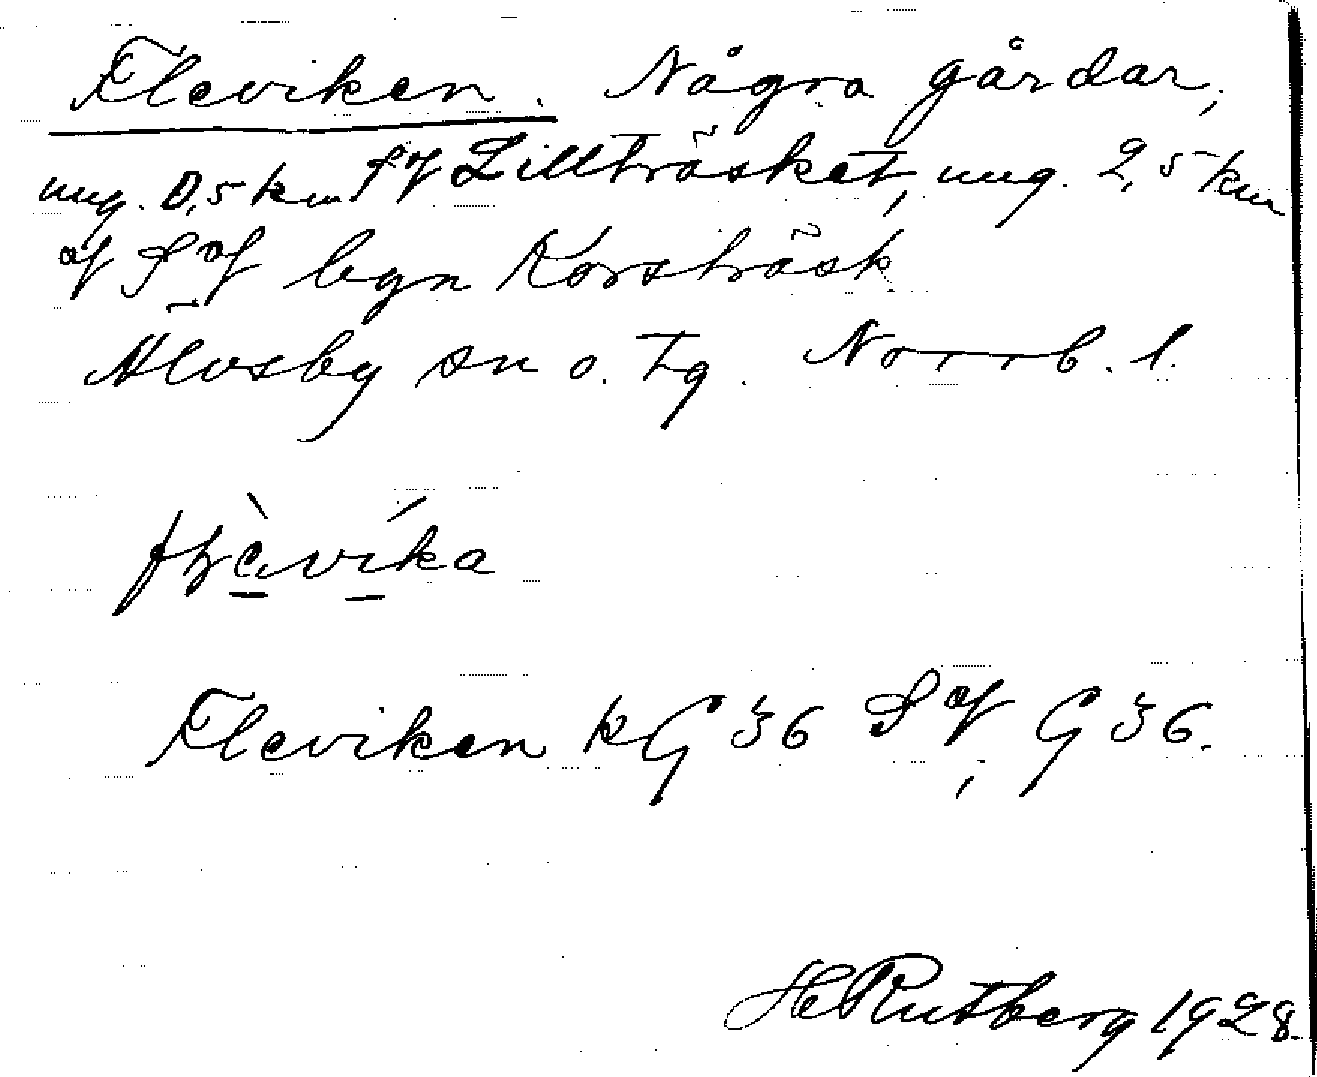 Fleviken. Några gårdar,
ung. 0,5 km SV Lillträsket, ung. 2,5 km
V SV byn Korsträsk
Älvsby sn o. tg. Norrb. l.
Fleviken kG 36 SV, G 36.
H Rutberg 1928